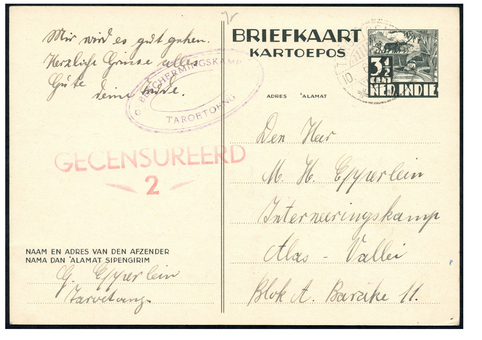 Mir wird es gut gehen.
Herzliche Grüsse alles
Gute
deine
BESCHERMINGSKAMP
TAROETOENG
GECENSUREERD
2
NAAM EN ADRES VAN DEN AFZENDER
NAMA DAN 'ALAMAT SIPENGIRIM
G. Epperlein
Taroetoeng
BRIEFKAART
KARTOEPOS
3½
CENT
NED. INDIE
ADRES 'ALAMAT
Den Heer
M. H. Epperlein
Interneeringskamp
Alas - Vallei
Blok A. Barakke 11.